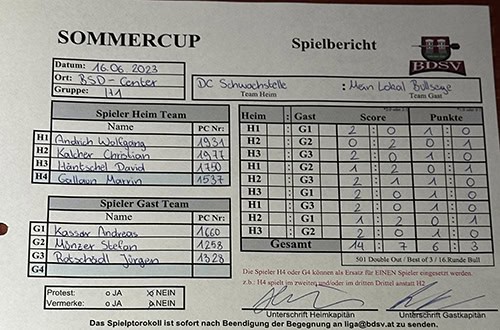 SOMMERCUP
Spielbericht
BDSV
Datum: 16.06.2023
Ort: BSD-Center
Gruppe: H1
DC Schwachstelle : Mein Lokal Bullseye
Team Heim Team Gast
Spieler Heim Team
Name PC Nr:
H1 Andrich Wolfgang 1931
H2 Kalcher Christian 1977
H3 Häntschel David 1750
H4 Marvin 1537
Spieler Gast Team
Name PC Nr:
G1 Kasser Andreas 1660
G2 Münzer Stefan 1258
G3 Rotschädl Jürgen 1328
G4
Heim : Gast Score Punkte
H1 : G1 2 : 0 1 : 0
H2 : G2 0 : 2 0 : 1
H3 : G3 2 : 0 1 : 0
H1 : G2 1 : 2 0 : 1
H2 : G3 2 : 1 1 : 0
H3 : G1 2 : 0 1 : 0
H1 : G3 2 : 0 1 : 0
H2 : G1 1 : 2 0 : 1
H3 : G2 2 : 0 1 : 0
Gesamt 14 : 7 6 : 3
501 Double Out / Best of 3 / 16.Runde Bull
Die Spieler H4 oder G4 können als Ersatz für EINEN Spieler eingesetzt werden.
z.b.: H4 spielt im zweiten und/oder im dritten Drittel anstatt H2
Protest: o JA x NEIN
Vermerke: o JA x NEIN
Unterschrift Heimkapitän Unterschrift Gastkapitän
Das Spielptorokoll ist sofort nach Beendigung der Begegnung an liga@bdsv.at zu senden!